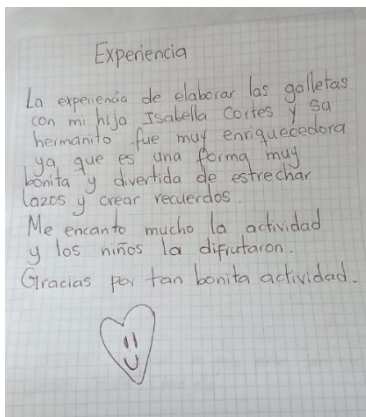 Experiencia
La experiencia de elaborar las galletas
con mi hija Isabella Cortes y su
hermanito fue muy enriquecedora
ya que es una forma muy
bonita y divertida de estrechar
lazos y crear recuerdos.
Me encanto mucho la actividad
y los niños la difrutaron.
Gracias por tan bonita actividad.